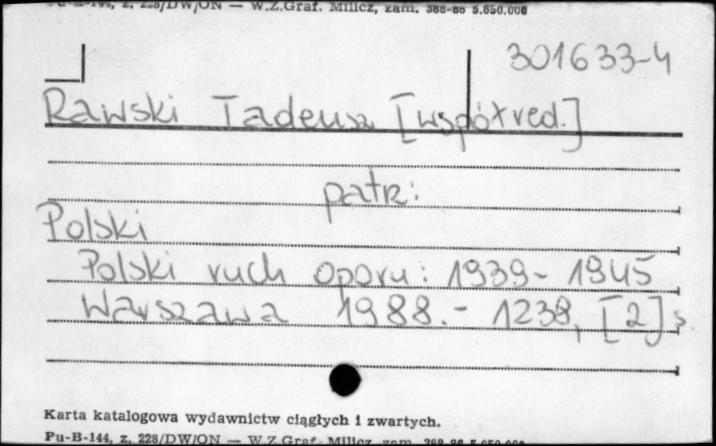 Pu-B-144, z. 228/DW/ON — W.Z.Graf. Milicz, zam. 388-86 5.650.000
301633-4
Rawski Tadeusz [współred.]
patrz:
Polski
Polski ruch oporu: 1939-1945
Warszawa 1988.- 1238, [2] s.
Karta katalogowa wydawnictw ciągłych i zwartych.
Pu-B-144, z. 228/DW/ON — W.Z.Graf. Milicz, zam. 388-86 5.650.000